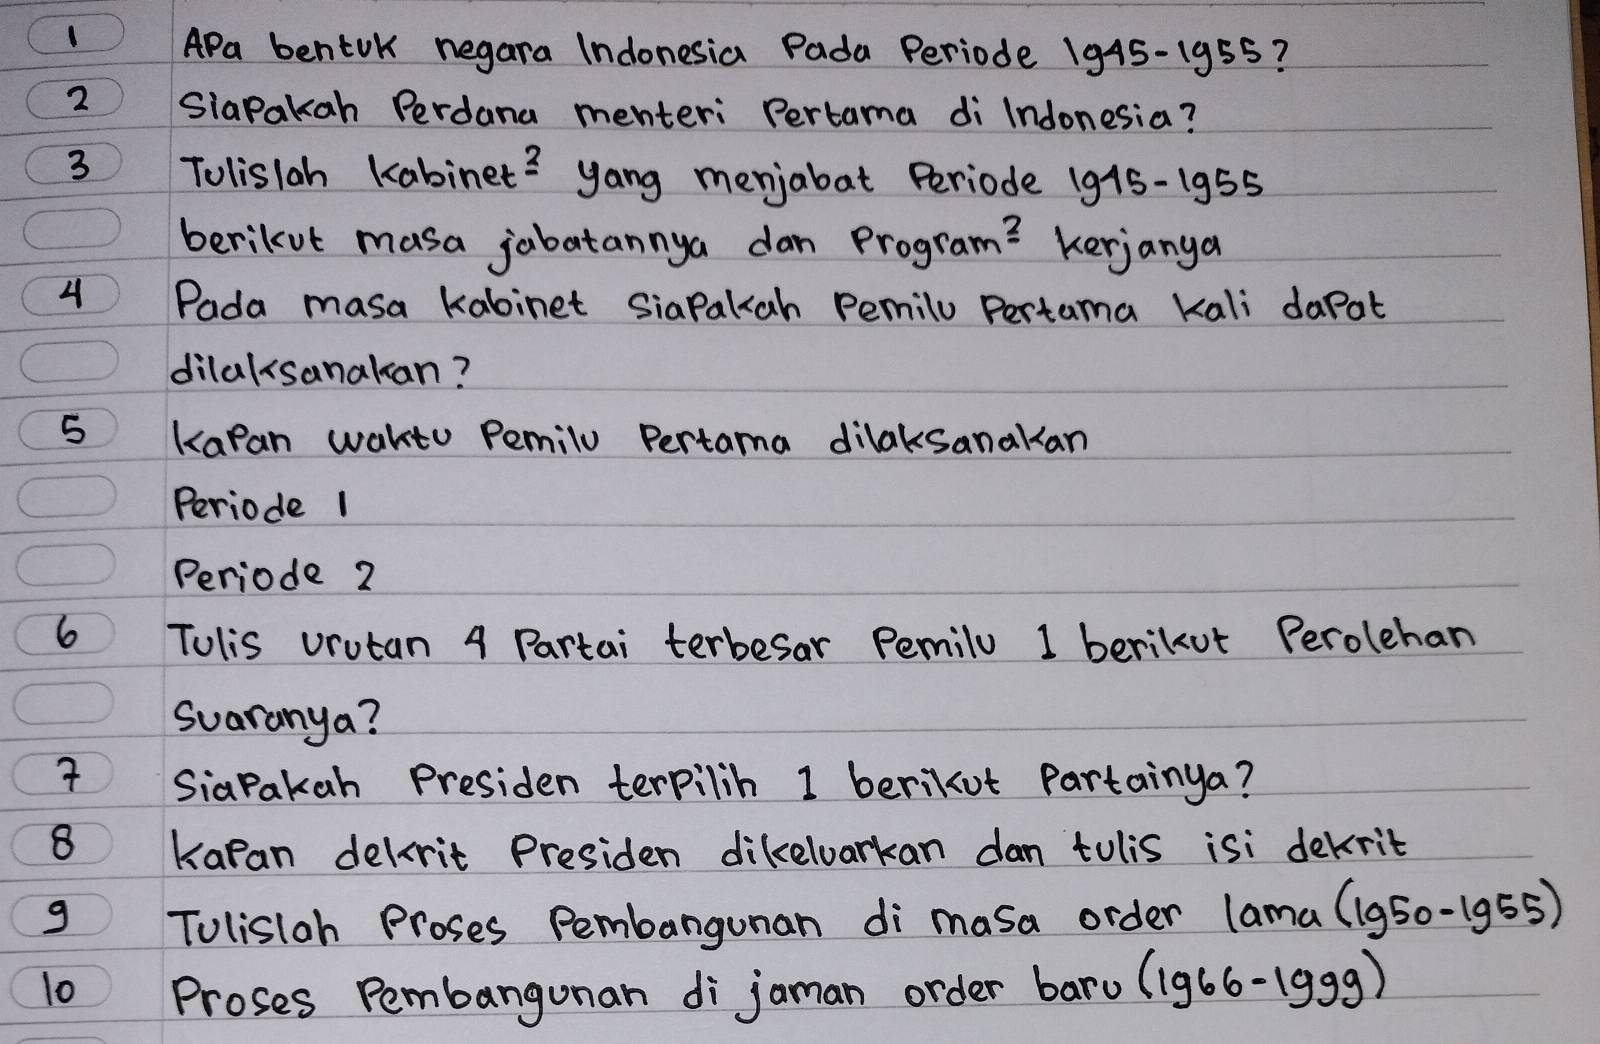 1 Apa bentuk negara Indonesia Pada Periode 1945-1955?
2 Siapakah Perdana menteri Pertama di Indonesia?
3 Tulislah kabinet² yang menjabat Periode 1945-1955
berikut masa jabatannya dan Program² kerjanya
4 Pada masa kabinet siapakah Pemilu Pertama kali dapat
dilaksanakan?
5 Kapan waktu Pemilu Pertama dilaksanakan
Periode 1
Periode 2
6 Tulis urutan 4 Partai terbesar Pemilu 1 berikut Perolehan
suaranya?
7 Siapakah Presiden terpilih 1 berikut Partainya?
8 Kapan dekrit Presiden dikeluarkan dan tulis isi dekrit
9 Tulislah Proses Pembangunan di masa order lama (1950-1955)
10 Proses Pembangunan di jaman order baru (1966-1999)